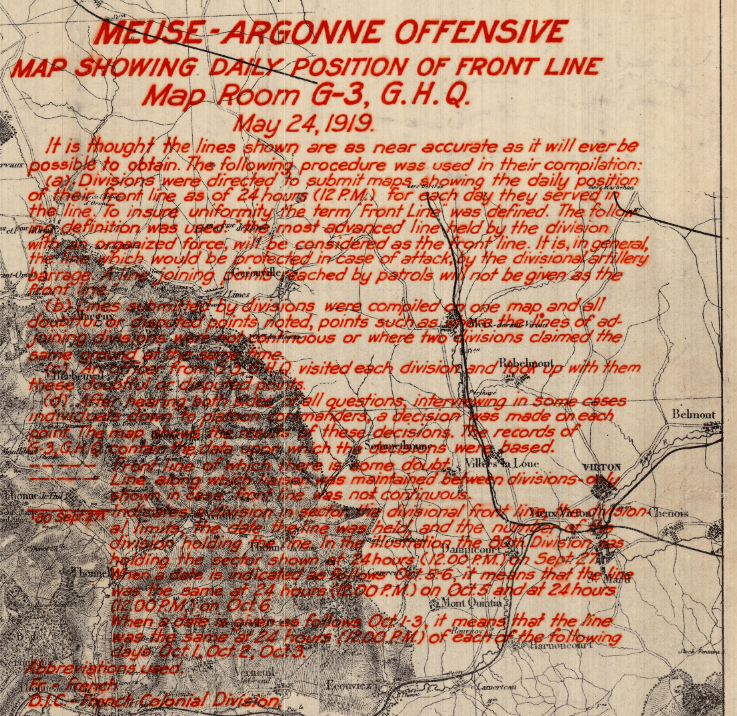 MEUSE-ARGONNE OFFENSIVE
MAP SHOWING DAILY POSITION OF FRONT LINE
Map Room G-3, G.H.Q.
May 24, 1919.
It is thought the lines shown are as near accurate as it will ever be
possible to obtain. The following procedure was used in their compilation:
(a) Divisions were directed to submit maps showing the daily position
of their front line as of 24 hours (12 P.M.) for each day they served in
the line. To insure uniformity the term Front Line was defined. The follow-
definition was used the most advanced line held by the division
with an organized force, will be considered as the front line. It is, in general,
the line which would be protected in case of attack by the divisional artillery
barrage. A line joining reached by patrols will not be given as the
front line.
(b) Lines submitted by divisions were compiled on one map and all
doubtful or disputed points noted, points such as the lines of ad-
joining divisions were not continuous or where two divisions claimed the
same ground at the same time.
(c) An officer from G-3, G.H.Q. visited each division and took up with them
these doubtful or disputed points.
(d) After hearing both sides of all questions, interviewing in some cases
individuals down to platoon commanders, a decision was made on each
point. The map shows the results of these decisions. The records of
G-3, G.H.Q. contain the data upon which the decisions were based.
Front line of which there is some doubt.
Line along which liaison was maintained between divisions-only
shown in case front line was not continuous.
Indicates a division in sector, the divisional front line, the division-
al limits, the date the line was held, and the number of the
division holding the line. In the illustration the 80th Division was
holding the sector shown at 24 hours (12.00 P.M.) on Sept. 27.
When a date is indicated as follows Oct. 5-6, it means that the line
was the same at 24 hours (12.00 P.M.) on Oct. 5 and at 24 hours
(12.00 P.M.) on Oct. 6.
When a date is given as follows Oct. 1-3, it means that the line
was the same at 24 hours (12.00 P.M.) of each of the following
days Oct. 1, Oct. 2, Oct. 3.
Abbreviations used.
Fr. - French
D.I.C. - French Colonial Division.
Limes
Robelmont
Belmont
Villers la Loue
VIRTON
Vieux Virton
Chenois
Dampicourt
Mont Quintin
Harnoncourt
Ecouviez
Lamorteau